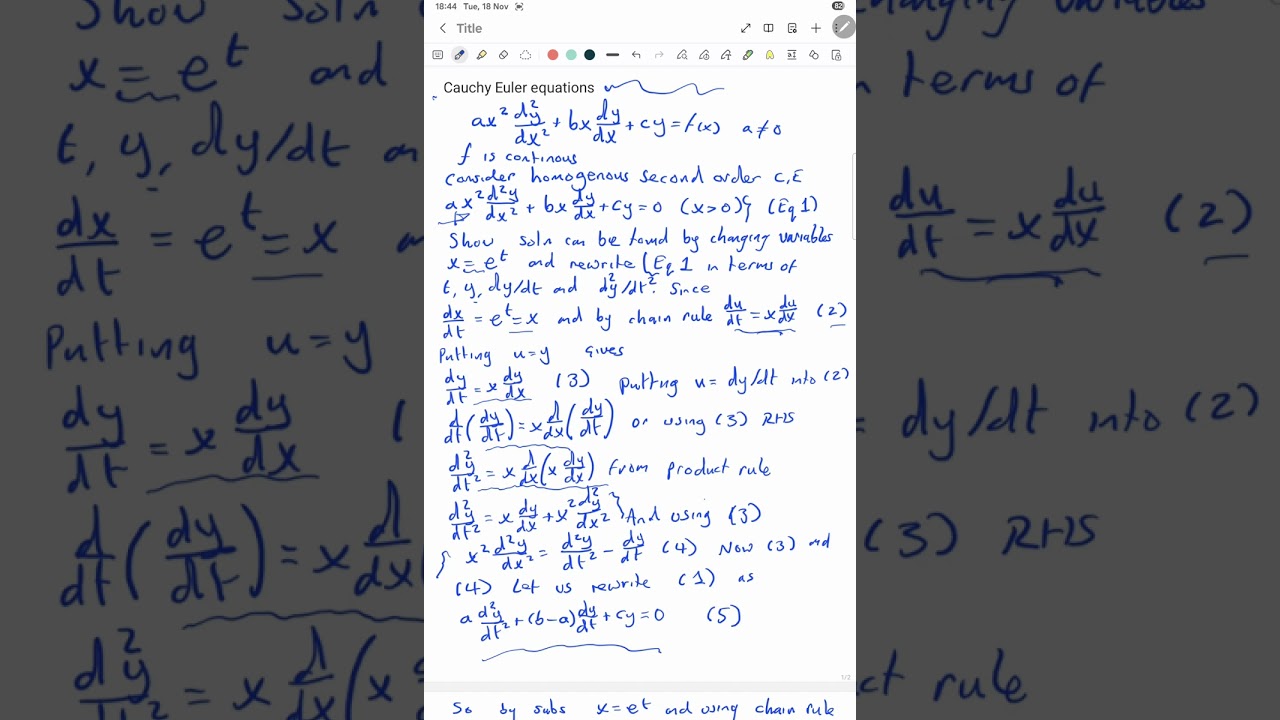 18:44 Tue, 18 Nov
82
Title
Cauchy Euler equations
ax² d²y/dx² + bx dy/dx + cy = f(x) a≠0
f is continous
Consider homogenous second order C,E
ax² d²y/dx² + bx dy/dx + cy = 0 (x>0) (Eq1)
Show soln can be found by changing variables
x = e^t and rewrite (Eq 1 in terms of
t, y, dy/dt and d²y/dt². Since
dx/dt = e^t = x and by chain rule du/dt = x du/dx (2)
Putting u=y gives
dy/dt = x dy/dx (3) putting u = dy/dt into (2)
d/dt (dy/dt) = x d/dx (dy/dt) or using (3) RHS
d²y/dt² = x d/dx (x dy/dx) from product rule
d²y/dt² = x dy/dx + x² d²y/dx² } And using (3)
x² d²y/dx² = d²y/dt² - dy/dt (4) Now (3) and
(4) Let us rewrite (1) as
a d²y/dt² + (b-a) dy/dt + cy = 0 (5)
1/2
So by subs x = e^t and using chain rule